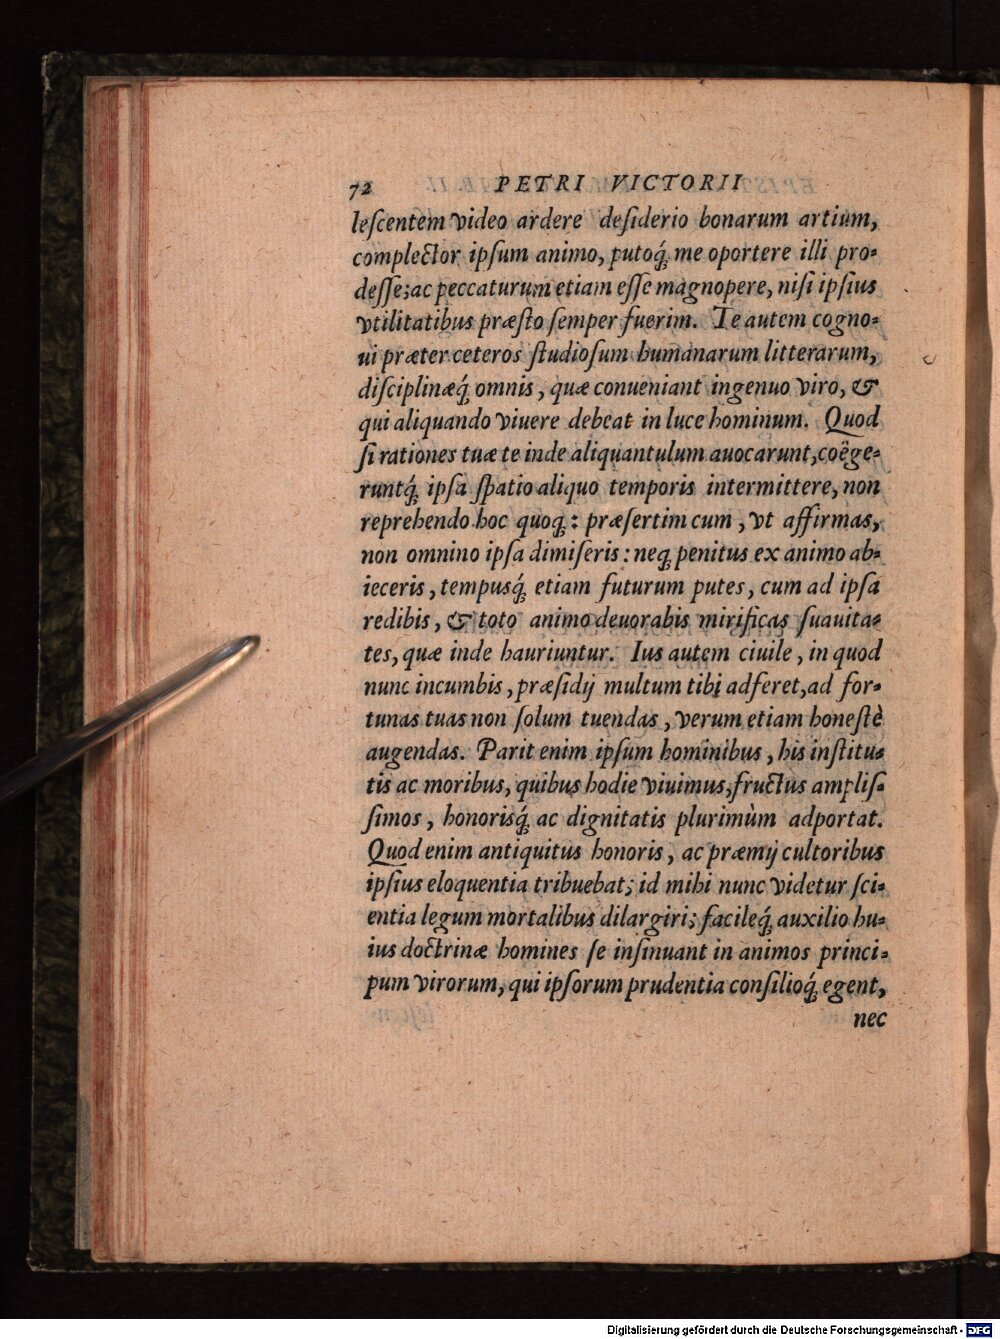 72 PETRI VICTORII
leſcentem video ardere deſiderio bonarum artium,
complector ipſum animo, putoq́; me oportere illi pro-
deſſe; ac peccaturum etiam eſſe magnopere, niſi ipſius
vtilitatibus præſto ſemper fuerim. Te autem cogno-
ui præter ceteros ſtudioſum humanarum litterarum,
diſciplinæq́; omnis, quæ conueniant ingenuo viro, &
qui aliquando viuere debeat in luce hominum. Quod
ſi rationes tuæ te inde aliquantulum auocarunt, coëge-
runtq́; ipſa ſpatio aliquo temporis intermittere, non
reprehendo hoc quoq;: præſertim cum, vt affirmas,
non omnino ipſa dimiſeris: neq; penitus ex animo ab-
ieceris, tempusq́; etiam futurum putes, cum ad ipſa
redibis, & toto animo deuorabis mirificas ſuauita-
tes, quæ inde hauriuntur. Ius autem ciuile, in quod
nunc incumbis, præſidij multum tibi adferet, ad for-
tunas tuas non ſolum tuendas, verum etiam honeſtè
augendas. Parit enim ipſum hominibus, his inſtitu-
tis ac moribus, quibus hodie viuimus, fructus ampliſ-
ſimos, honorisq́; ac dignitatis plurimùm adportat.
Quod enim antiquitus honoris, ac præmij cultoribus
ipſius eloquentia tribuebat; id mihi nunc videtur ſci-
entia legum mortalibus dilargiri; facileq́; auxilio hu-
ius doctrinæ homines ſe inſinuant in animos princi-
pum virorum, qui ipſorum prudentia conſilioq́; egent,
nec
Digitalisierung gefördert durch die Deutsche Forschungsgemeinschaft - DFG